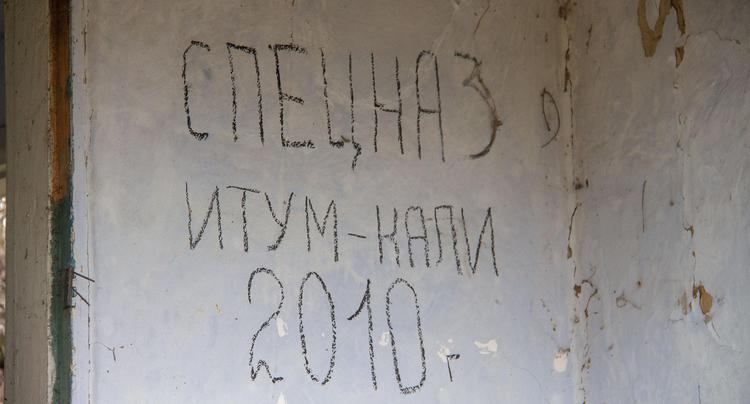 СПЕЦНАЗ
ИТУМ-КАЛИ
2010 г